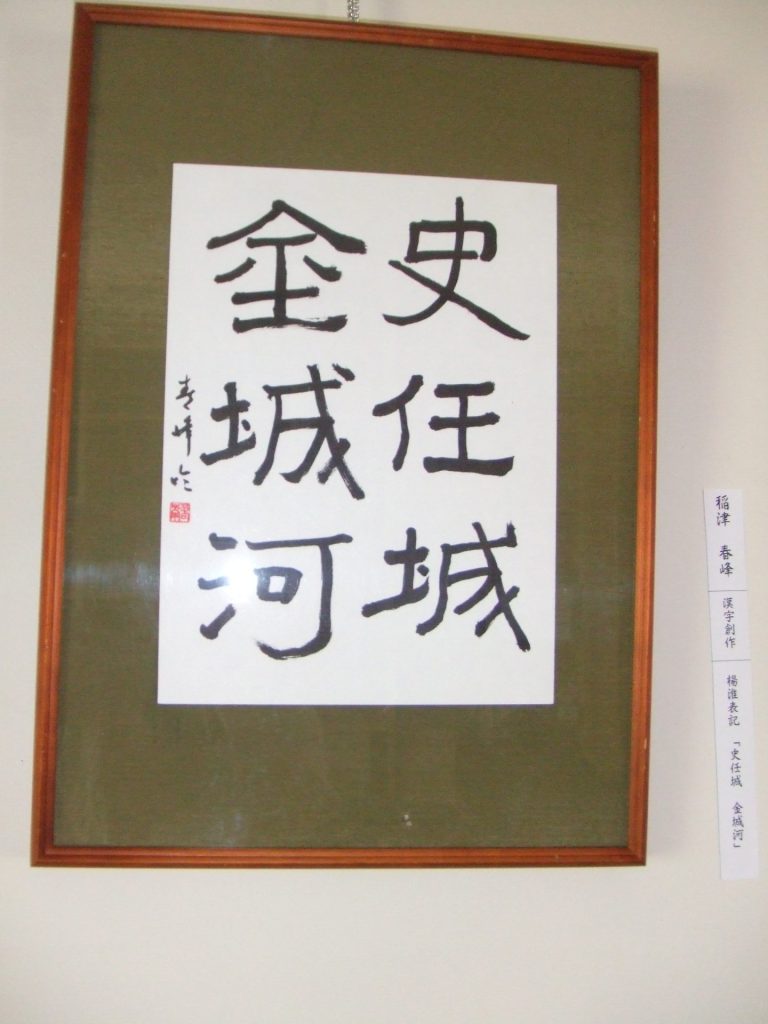 史任城
金城河
春峰
稲津 春峰
漢字創作
楊淮表記 「史任城 金城河」